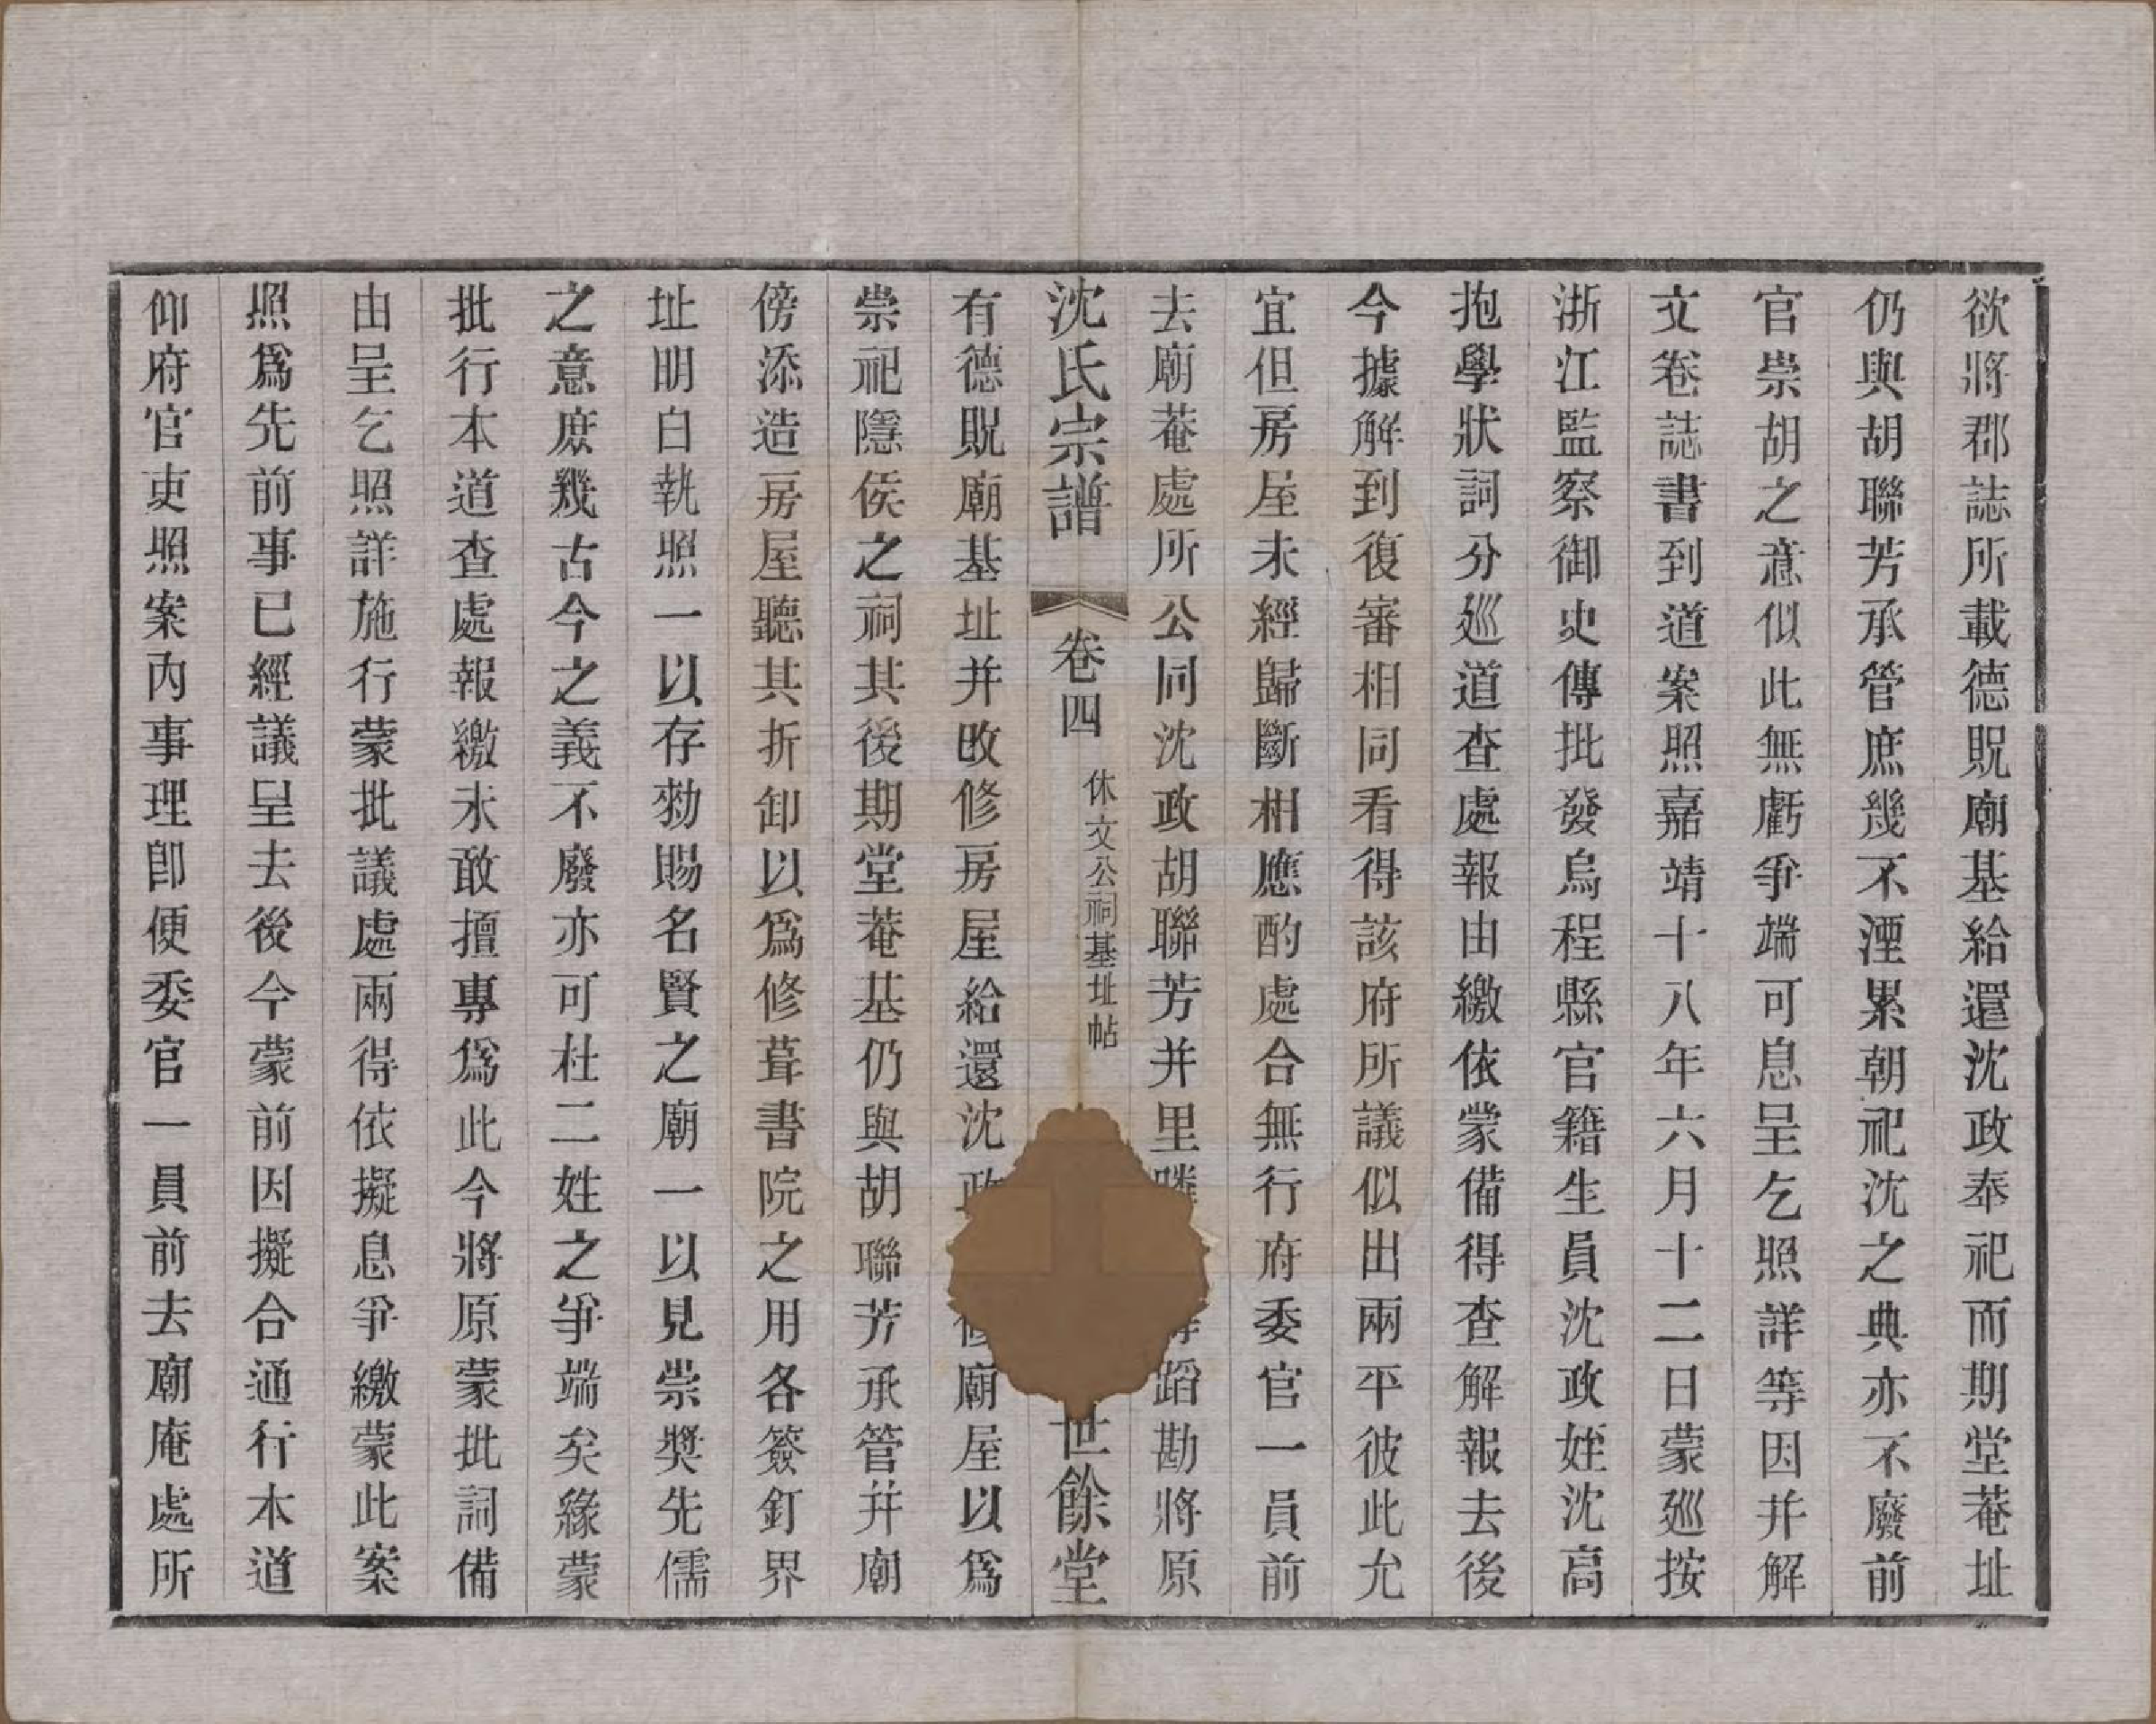 欲將郡誌所載德貺廟基給還沈政奉祀而期堂菴址
仍與胡聯芳承管庶幾不湮累朝祀沈之典亦不廢前
官崇胡之意似此無虧爭端可息呈乞照詳等因并解
文卷誌書到道案照嘉靖十八年六月十二日蒙廵按
浙江監察御史傳批發烏程縣官籍生員沈政姪沈高
抱學狀詞分廵道查處報由繳依蒙備得查解報去後
今據解到復審相同看得該府所議似出兩平彼此允
宜但房屋未經歸斷相應酌處合無行府委官一員前
去廟菴處所公同沈政胡聯芳并里蹈勘將原
沈氏宗譜 卷四 休文公祠基址帖 世餘堂
有德貺廟基址并改修房屋給還沈廟屋以爲
崇祀隱侯之祠其後期堂菴基仍與胡聯芳承管并廟
傍添造房屋聽其折卸以爲修葺書院之用各簽釘界
址明白執照一以存勑賜名賢之廟一以見崇奬先儒
之意庶幾古今之義不廢亦可杜二姓之爭端矣緣蒙
批行本道查處報繳未敢擅專爲此今將原蒙批詞備
由呈乞照詳施行蒙批議處兩得依擬息爭繳蒙此案
照爲先前事已經議呈去後今蒙前因擬合通行本道
仰府官吏照案內事理卽便委官一員前去廟庵處所